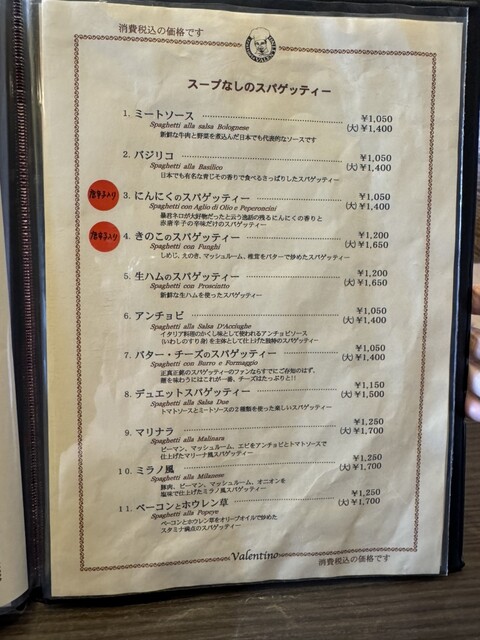 消費税込の価格です
スープなしのスパゲッティー
1. ミートソース ¥1,050
Spaghetti alla salsa Bolognese (大)¥1,400
新鮮な牛肉と野菜を煮込んだ日本でも代表的なソースです
2. バジリコ ¥1,050
Spaghetti alla Basilico (大)¥1,400
日本でも有名な青じその香りで食べるさっぱりしたスパゲッティー
唐辛子入り
3. にんにくのスパゲッティー ¥1,050
Spaghetti con Aglio di Olio e Peperoncini (大)¥1,400
暴君ネロが大好物だったと云う逸話の残るにんにくの香りと
赤唐辛子の辛味だけのスパゲッティー
唐辛子入り
4. きのこのスパゲッティー ¥1,200
Spaghetti con Funghi (大)¥1,650
しめじ、えのき、マッシュルーム、椎茸をバターで炒めたスパゲッティー
5. 生ハムのスパゲッティー ¥1,200
Spaghetti con Prosciutto (大)¥1,650
新鮮な生ハムを使ったスパゲッティー
6. アンチョビ ¥1,050
Spaghetti alla Salsa D'Acciughe (大)¥1,400
イタリア料理のかくし味として使われるアンチョビソース
(いわしのすり身)を主体として仕上げた独特のスパゲッティー
7. バター・チーズのスパゲッティー ¥1,050
Spaghetti con Burro e Formaggio (大)¥1,400
正真正銘のスパゲッティーのファンならすでにご存知のはず、
麺を味わうにはこれが一番、チーズはたっぷりと!!
8. デュエットスパゲッティー ¥1,150
Spaghetti alla Salsa Due (大)¥1,500
トマトソースとミートソースの2種類を使った楽しいスパゲッティー
9. マリナラ ¥1,250
Spaghetti alla Malinara (大)¥1,700
ピーマン、マッシュルーム、エビをアンチョビとトマトソースで
仕上げたマリーナ風スパゲッティー
10. ミラノ風 ¥1,250
Spaghetti alla Milanese (大)¥1,700
豚肉、ピーマン、マッシュルーム、オニオンを
塩味で仕上げたミラノ風スパゲッティー
11. ベーコンとホウレン草 ¥1,250
Spaghetti alla Popeye (大)¥1,700
ベーコンとホウレン草をオリーブオイルで炒めた
スタミナ満点のスパゲッティー
Valentino
消費税込の価格です